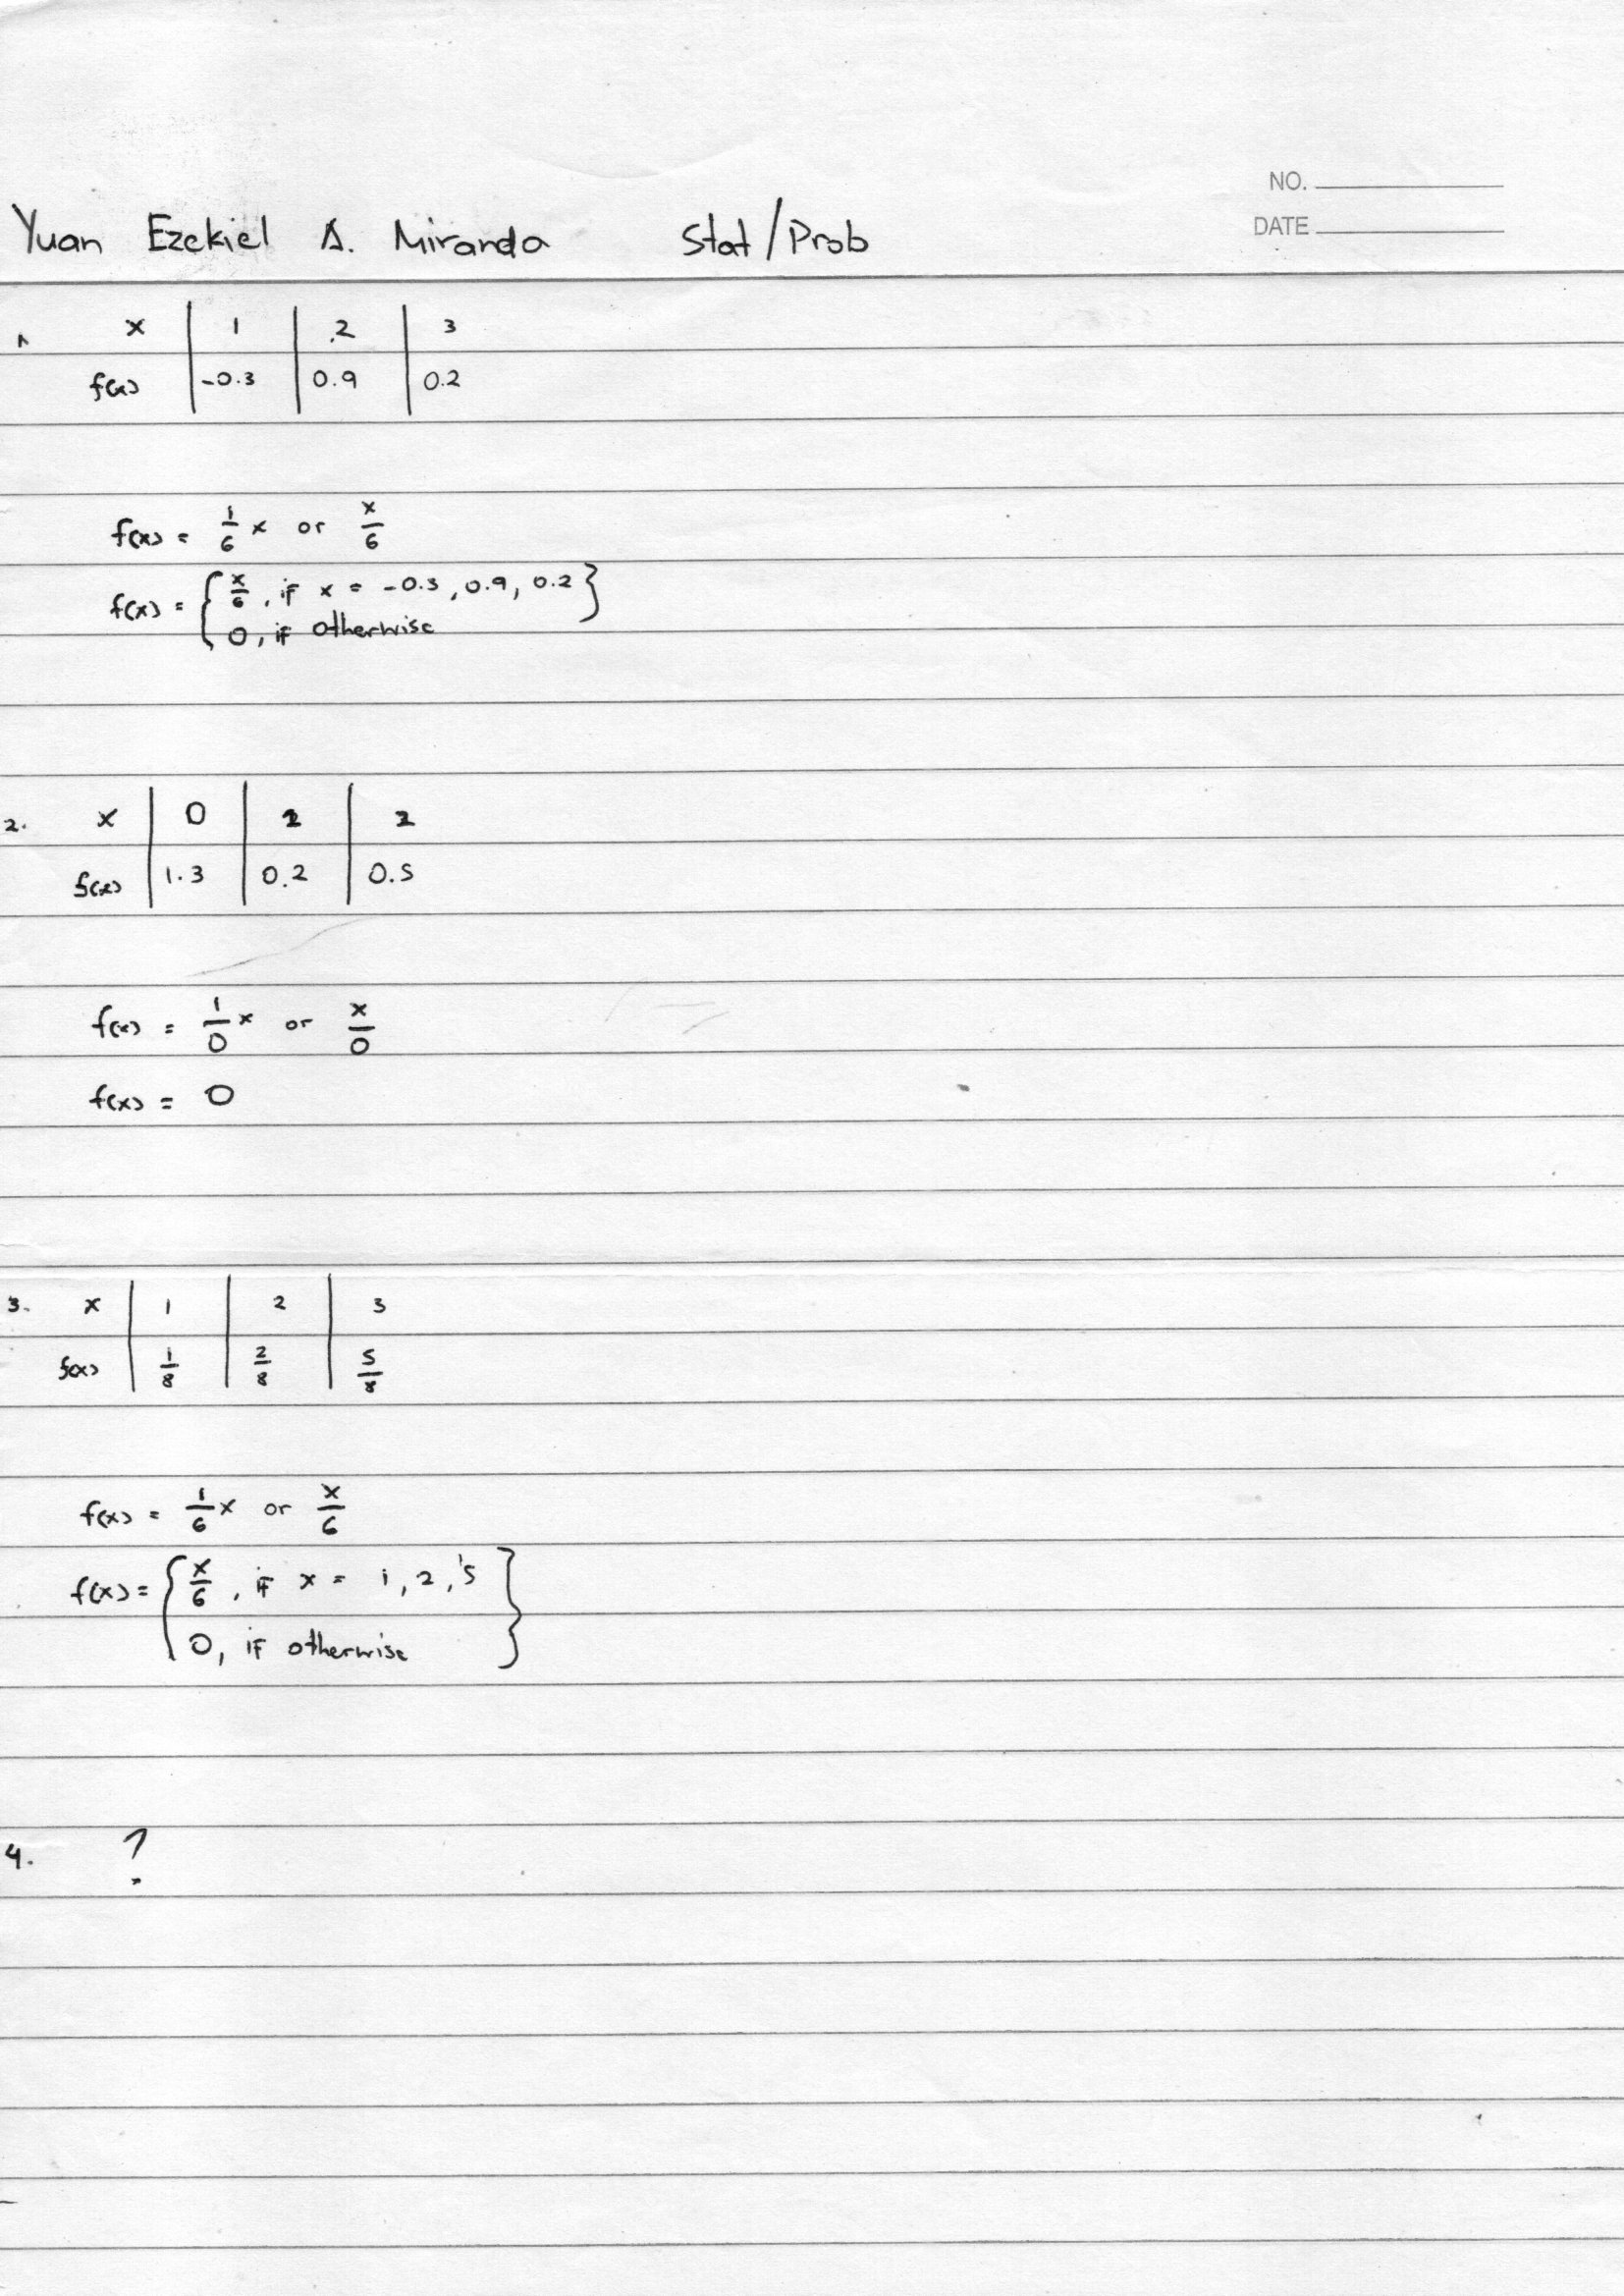 NO.
DATE
Yuan Ezekiel A. Miranda Stat/Prob
1. x | 1 | 2 | 3
f(x) | -0.3 | 0.9 | 0.2
f(x) = 1/6 x or x/6
f(x) = { x/6, if x = -0.3, 0.9, 0.2 }
0, if otherwise
2. x | 0 | 1 | 2
f(x) | 1.3 | 0.2 | 0.5
f(x) = 1/0 x or x/0
f(x) = 0
3. x | 1 | 2 | 3
f(x) | 1/8 | 2/8 | 5/8
f(x) = 1/6 x or x/6
f(x) = { x/6, if x = 1, 2, 5 }
0, if otherwise
4. ?